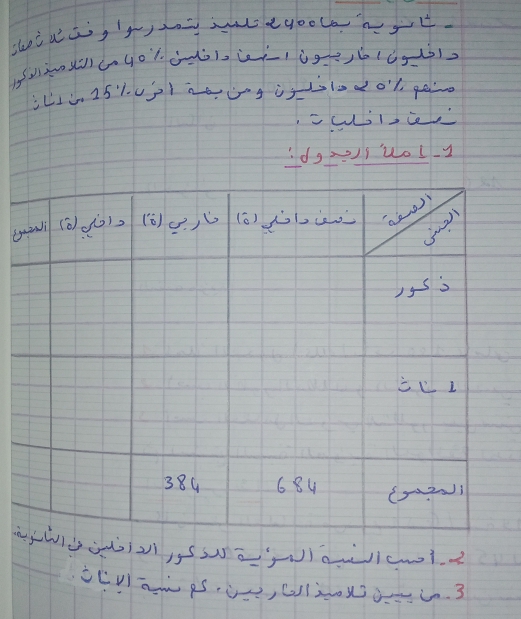 - ثانوية بها 2400 تلميذ يتمدرسوا وفق ثلاث صفات
داخليون، خارجيون، نصف داخليين 40% من التلاميذ الذكور
منهم 20% داخليون ومن جهة أخرى 15% من إناث
نصف داخليات.
1- املأ الجدول:
الصفة
الجنس
نصف داخلي (ة)
خارجي (ة)
داخلي (ة)
المجموع
ذكور
إناث
المجموع
684
384
2- أحسب النسبة المئوية للذكور الداخلين في الثانوية.
3- من بين تلاميذ الخارجين، كم نسبة الإناث.